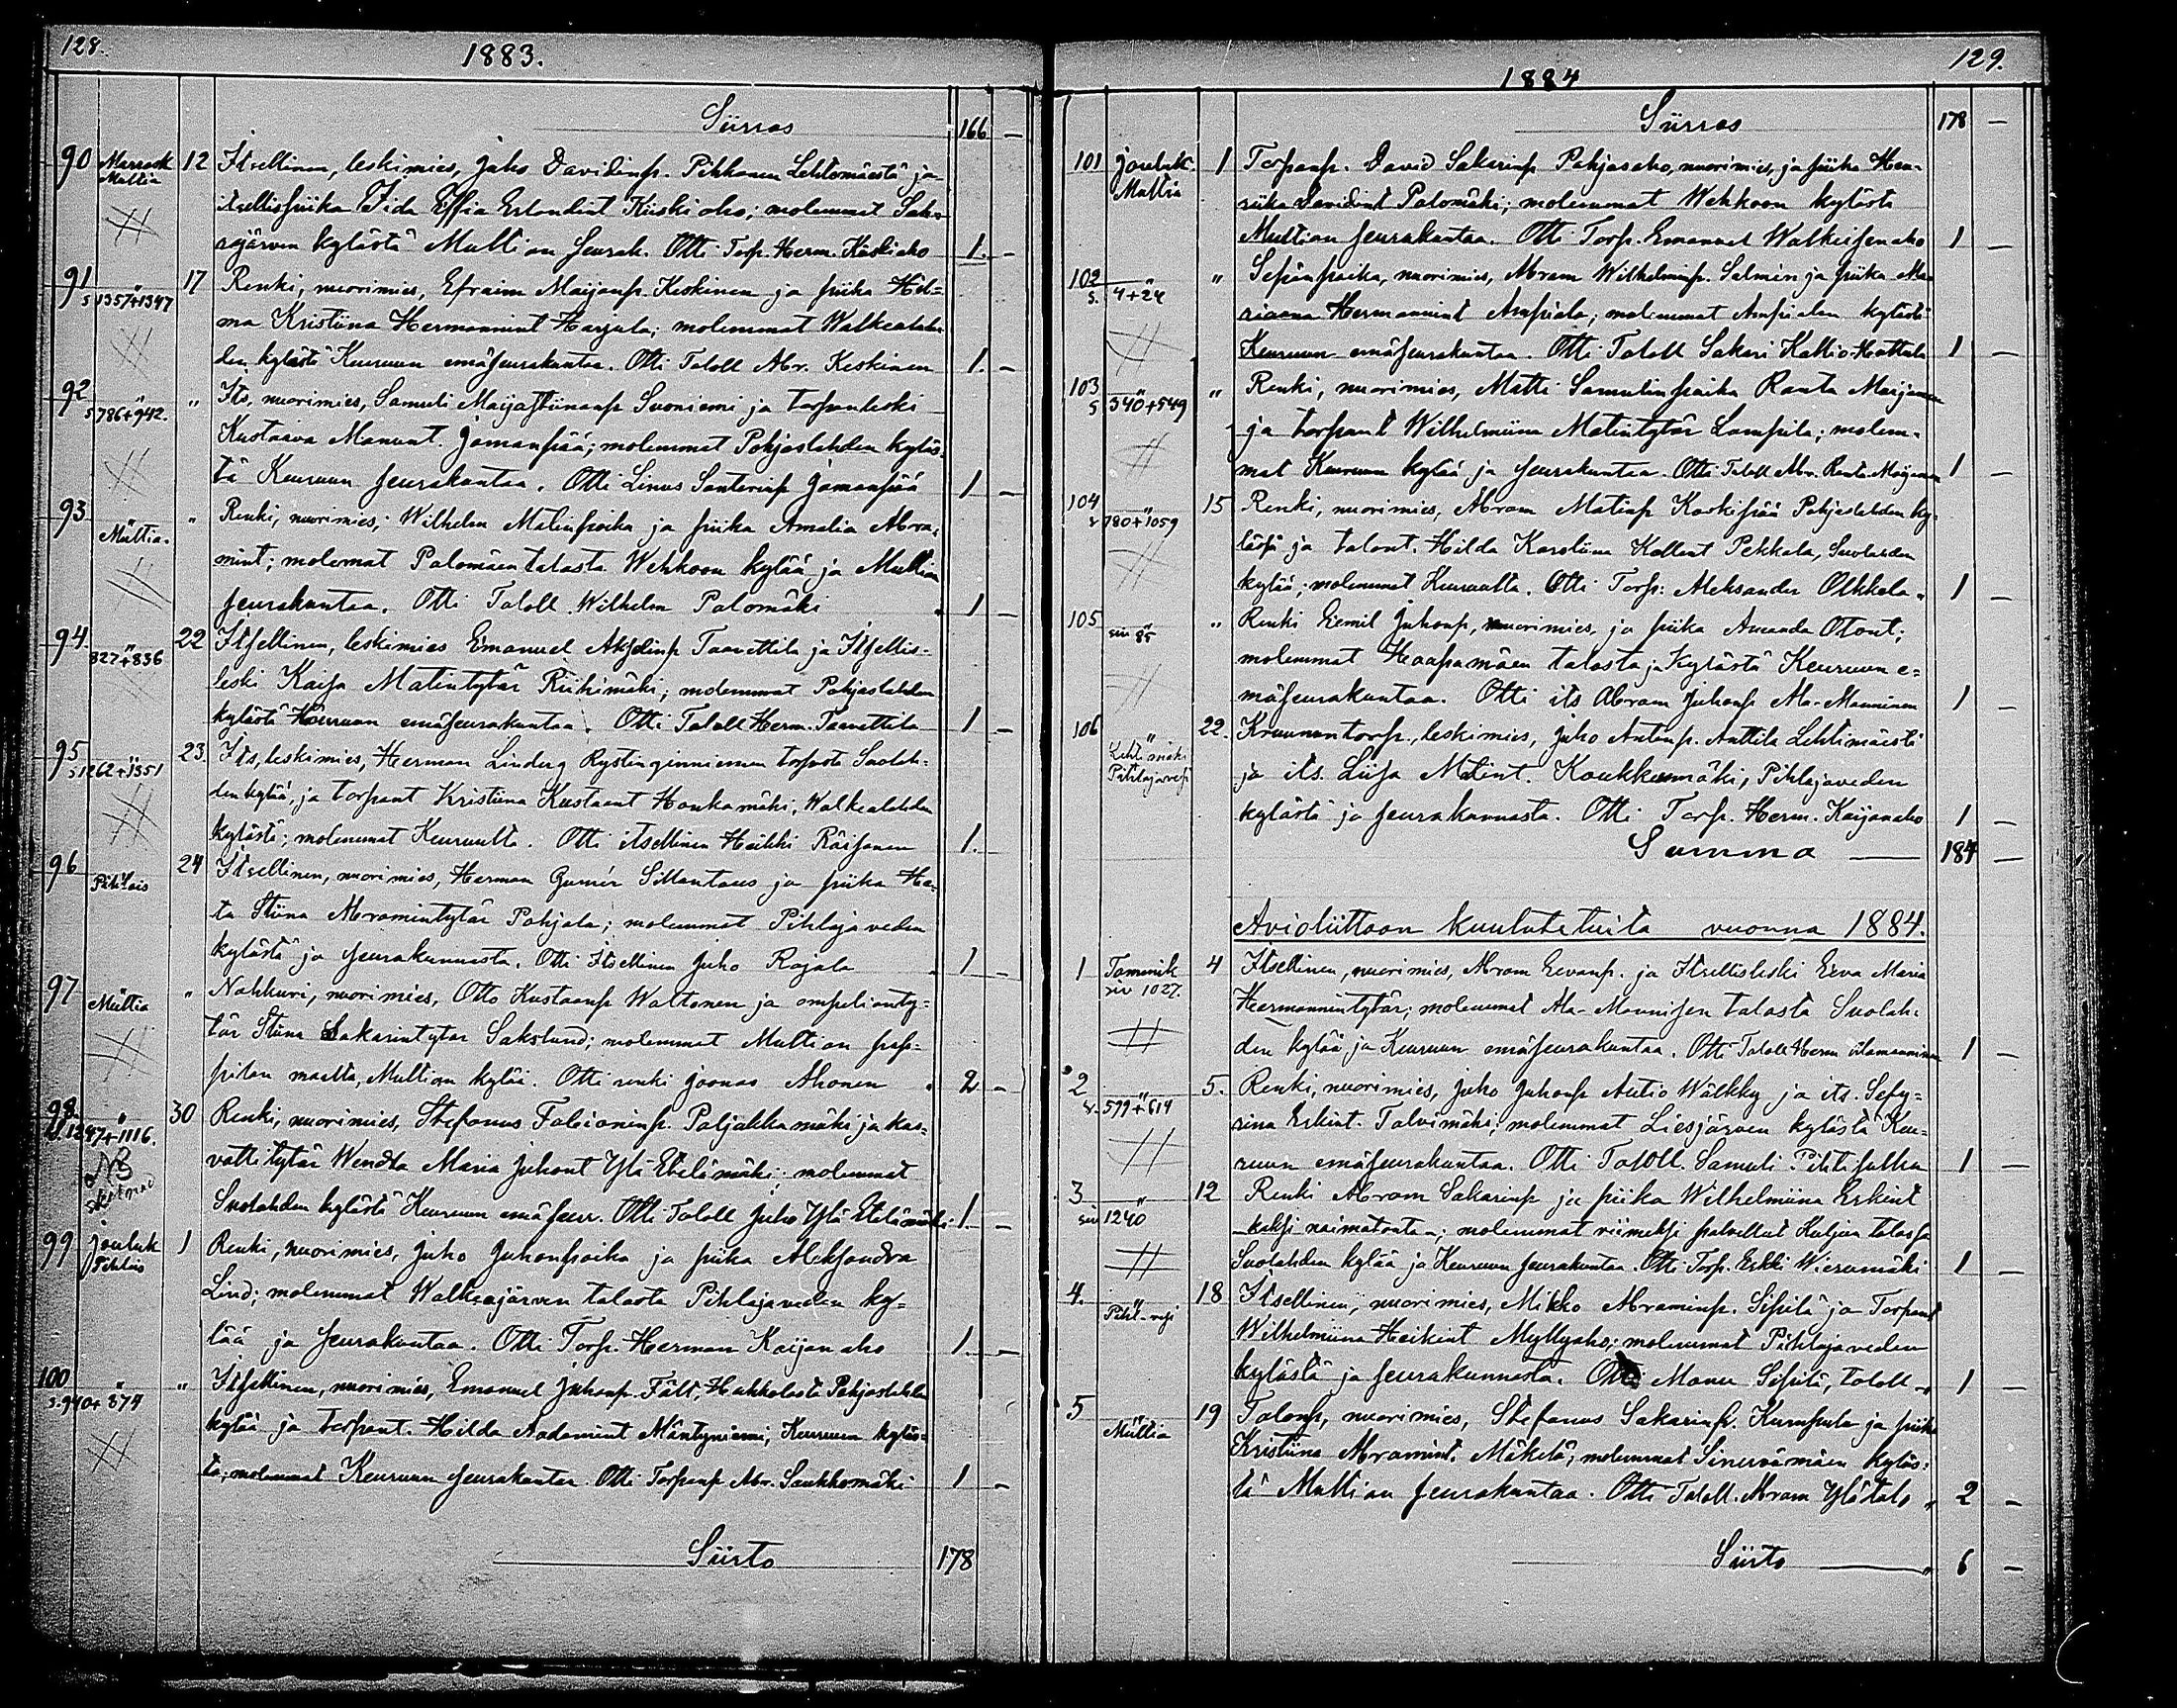 128.
1883.
Siirros 166 —
90 Marrask Multia 12 Itsellinen, leskimies, Juho Davidinp. Pihkanen Lehtomäestä ja
itsellispiika Fida Effia Erlandint Kiiskiaho; molemmat Saha-
rajärven kylästä Multian seurak. Otti Torp. Herm. Kiiskiaho 1. —
91 s 1357+1347 17 Renki, nuorimies, Efraim Maijanp. Keskinen ja piika Hel-
ma Kristiina Hermannint Harjula; molemmat Walkealah-
den kylästä Keuruun emäseurakuntaa. Otti Taloll Abr. Keskinen 1. —
92 s 786+942. " Its, nuorimies, Samuli Maijastiinanp Suoniemi ja torpanleski
Kustaava Manunt. Jamanpää; molemmat Pohjaslahden kyläs-
tä Keuruun seurakuntaa. Otti Linus Santerinp Jamanpää 1 —
93 " Multia. " Renki, nuorimies, Wilhelm Matinpoika ja piika Amalia Abra-
mint; molemat Palomäen talosta Wehkoon kylää ja Multian
seurakuntaa. Otti Taloll Wilhelm Palomäki 1 —
94. 827+836 22 Itsellinen, leskimies Emanuel Akselinp Taavettila ja Itsellis-
leski Kaisa Matintytär Riihimäki; molemmat Pohjaslahden
kylästä Keuruun emäseurakuntaa. Otti Taloll Herm. Taavettila 1 —
95 s 1262+1351 23. Its, leskimies, Herman Linderg Rystinginniemen torpasta Suolah-
den kylää, ja torpant Kristiina Kustaant Honkamäki, Walkealahden
kylästä; molemmat Keuruulta. Otti itsellinen Heikki Räisänen 1.
96 " Pihlais 24 Itsellinen, nuorimies, Herman Gumér Sillantaus ja piika He-
ta Stiina Abramintytär Pohjala; molemmat Pihlajaveden
kylästä ja seurakunnasta. Otti Itsellinen Juho Rajala 1 —
97 " Multia " Nahkuri, nuorimies, Otto Kustaanp Waltonen ja ompelianty-
tär Stiina Sakarintytar Sakslund; molemmat Multian pap-
pilan maalta, Multian kylää. Otti renki Joonas Ahonen 2 —
98 s. 1247+1116. NB 30 Renki, nuorimies, Stefanus Fabianinp. Paljakkamäki ja kas-
vattitytär Wendla Maria Juhont Ylä Etelämäki; molemmat
Suolahden kylästä Keuruun emäseur. Otti Taloll Juho Ylä Etelämäki 1. —
99 Jouluk Pihlais 1 Renki, nuorimies, Juho Juhonpoika ja piika Aleksandra
Lind; molemmat Walkeajärven talosta Pihlajaveden ky-
lää ja seurakuntaa. Otti Torp. Herman Kaijanaho 1. —
100 s. 940+874 " Itsellinen, nuorimies, Emanuel Juhonp. Fält, Huhkolasta Pohjaslahden
kylää ja torpant. Hilda Aadamint Mäntyniemi, Keuruun kyläs-
tä; molemmat Keuruun seurakuntaa Otti Torpanp Abr. Saukkomäki 1 —
Siirto 178
129.
1884
Siirros 178 —
101 Jouluk. Multia 1 Torpanp. David Sakarinp Pohjasaho, nuorimies, ja piika Hen-
riika Davidint Palomäki; molemmat Wehkoon kylästä
Multian seurakuntaa. Otti Torp. Emanuel Walkeisenaho 1 —
102 s. 4+24 " Sepänpoika, nuorimies, Abram Wilhelminp. Salmén ja piika Ma-
riaana Hermannint Ampiala; molemmat Ampialan kylästä
Keuruun emäseurakuntaa. Otti Taloll Sakari Kallio-Hattula 1 —
103 s 340+549 " Renki, nuorimies, Matti Samulinpoika Ranta Maijanen
ja torpant Wilhelmiina Matintytär Lampila; molem-
mat Keuruun kylää ja seurakuntaa. Otti Taloll Abr. Ranta-Maijanen 1 —
104 s 780+1059 15 Renki, nuorimies, Abram Matinp Koskipää Pohjaslahden ky-
lästä ja talont. Hilda Karoliina Kallent Pekkala, Suolahden
kylää; molemmat Keuruulta. Otti Torp. Aleksander Olkkola 1 —
105 siv 85 " Renki Eemil Juhonp, nuorimies, ja piika Amanda Otont;
molemmat Haapamäen talosta ja kylästä Keuruun e-
mäseurakuntaa. Otti its Abram Juhonp Ala-Manninen 1 —
106 " Lehtimäki Pihlajavesi 22. Kruununtorp., leskimies, Juho Antinp. Anttila Lehtimäestä
ja its. Liisa Matint. Koukkumäki, Pihlajaveden
kylästä ja seurakunnasta. Otti Torp. Herm. Kaijanaho 1 —
Summa — 184 —
Avioliittoon kuulutetuita vuonna 1884.
1 Tammik siv 1027. 4 Itsellinen, nuorimies, Abram Eevanp. ja Itsellisleski Eeva Maria
Heermannintytär; molemmat Ala-Mannisen talosta Suolah-
den kylää ja Keuruun emäseurakuntaa. Otti Taloll Herm Alamanninen 1 —
2 s. 599+614 5. Renki, nuorimies, Juho Juhonp Autio Wälkky ja its. Sefy-
rina Erkint. Talvimäki; molemmat Liesjärven kylästä Keu-
ruun emäseurakuntaa. Otti Taloll. Samuli Pihlisulku 1 —
3 siv 1240 12 Renki Abram Sakarinp ja piika Wilhelmiina Erkint
— kaksi naimatonta —; molemmat viimeksi palvellut Huljan talossa
Suolahden kylää ja Keuruun seurakuntaa. Otti Torp. Erkki Wierumäki 1 —
4. " Pihl-vesi 18 Itsellinen, nuorimies, Mikko Abraminp. Sipilä ja Torpant
Wilhelmiina Heikint Myllyaho; molemmat Pihlajaveden
kylästä ja seurakunnasta. Otti Manu Sipilä, taloll 1 —
5 " Multia 19 Talonp, nuorimies, Stefanus Sakarinp. Kumpula ja piika
Kristiina Abramint. Mäkelä; molemmat Sinervämäen kyläs-
tä Multian seurakuntaa. Otti Taloll. Abram Ylätalo " 2 —
Siirto — " 6 —